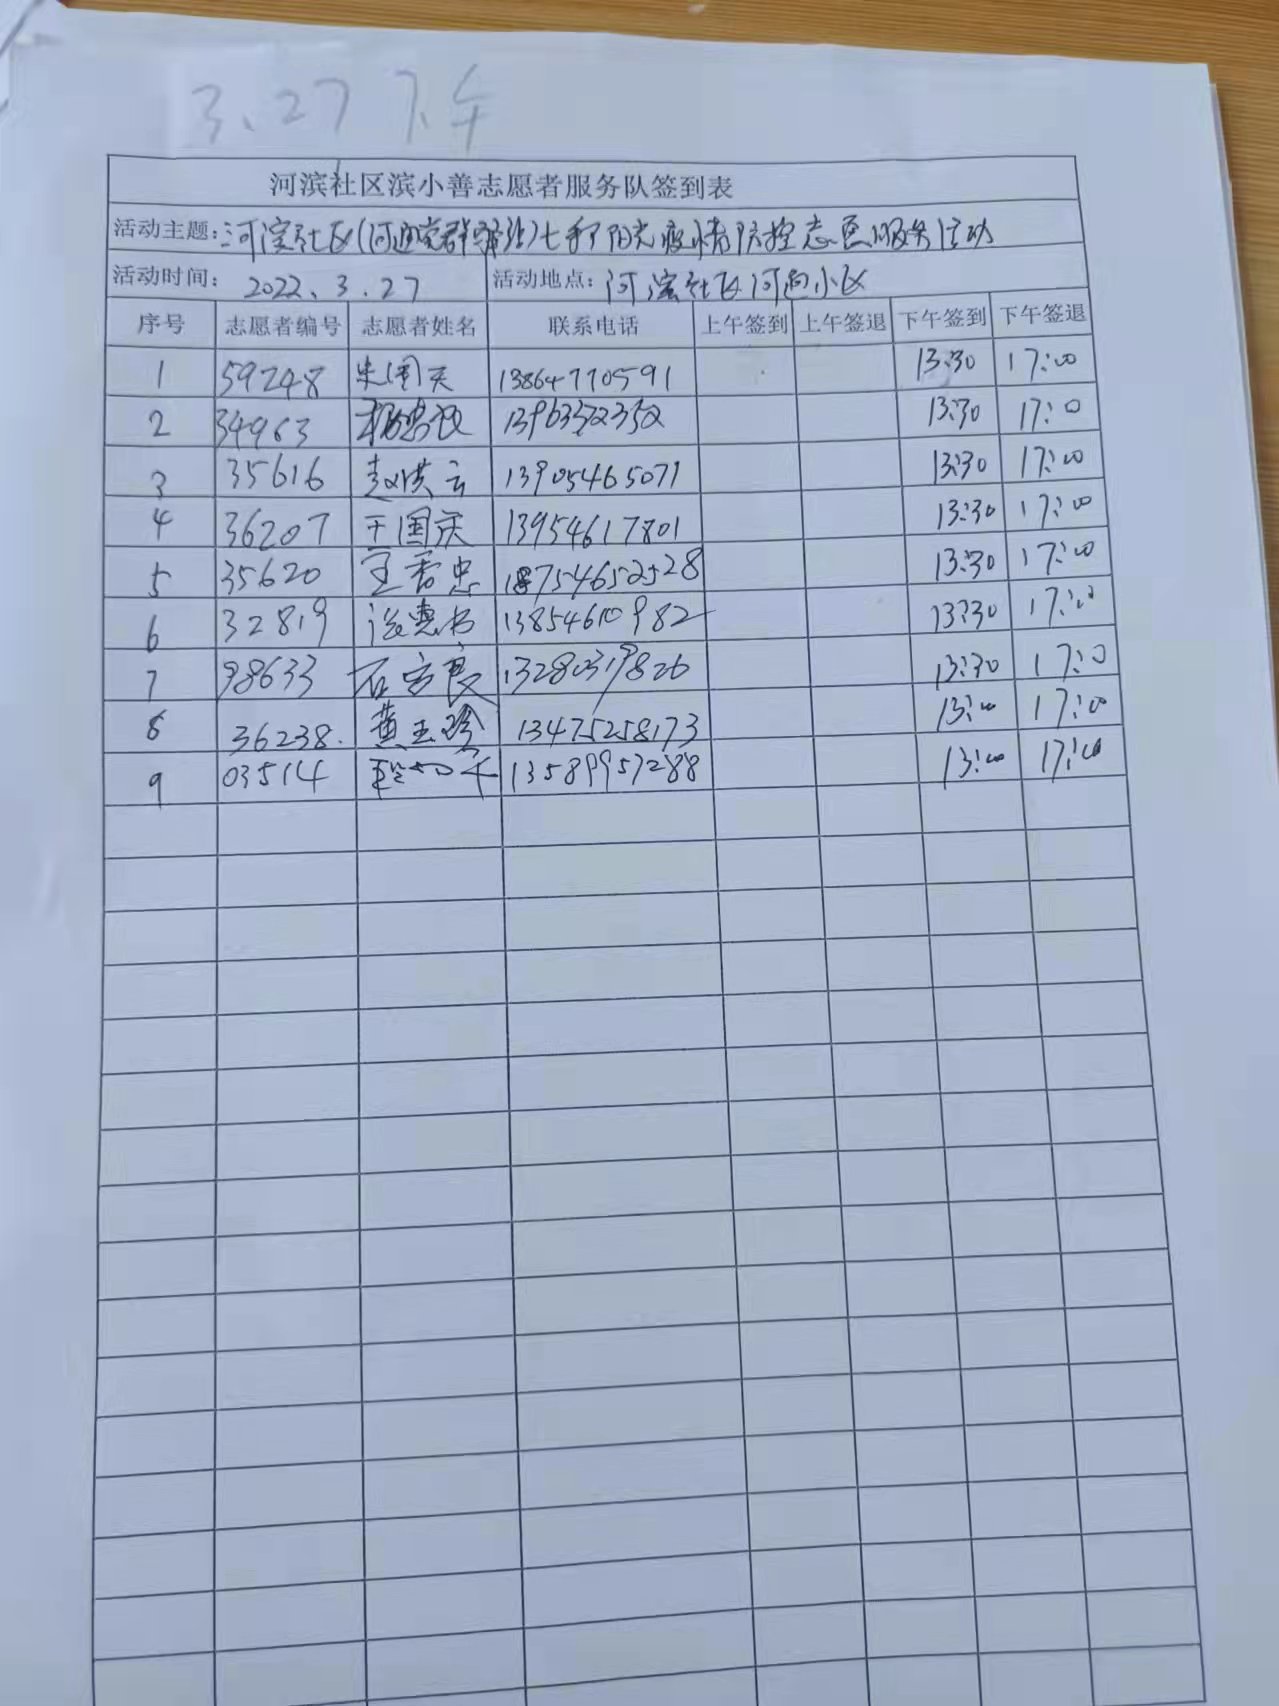 3.27 下午
河滨社区滨小善志愿者服务队签到表
活动主题：河滨社区(河迎党群驿站)七彩阳光疫情防控志愿服务活动
活动时间： 2022.3.27 活动地点： 河滨社区河迎小区
序号 志愿者编号 志愿者姓名 联系电话 上午签到 上午签退 下午签到 下午签退
1 59248 13864770591 13:30 17:00
2 34963 13963522352 13:30 17:0
3 35616 赵洪云 13905465071 13:30 17:00
4 36207 王国庆 13954617801 13:30 17:00
5 35620 18754652528 13:30 17:00
6 32819 13854610982 13:30 17:00
7 98633 石宝良 13280319826 13:30 17:0
8 36238. 黄玉珍 13475258173 13:00 17:00
9 03514 13589957288 13:00 17:00